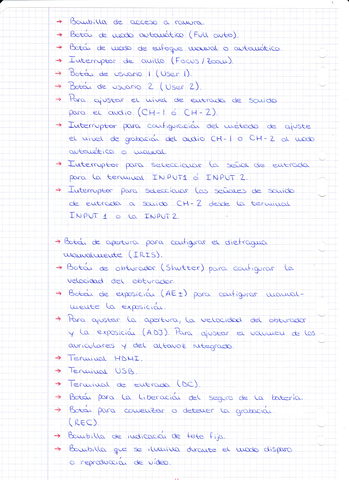 → Bombilla de acceso a ranura.
→ Botón de modo automático (Full auto).
→ Botón de modo de enfoque manual o automático.
→ Interruptor de anillo (Focus/Zoom).
→ Botón de usuario 1 (User 1).
→ Botón de usuario 2 (User 2).
→ Para ajustar el nivel de entrada de sonido
para el audio (CH-1 ó CH-2).
→ Interruptor para configuración del método de ajuste
el nivel de grabación del audio CH-1 o CH-2 al modo
automático o manual.
→ Interruptor para seleccionar la señal de entrada
para la terminal INPUT1 ó INPUT 2.
→ Interruptor para seleccionar las señales de sonido
de entrada a sonido CH-2 desde la terminal
INPUT 1 o la INPUT2.
→ Botón de apertura para configurar el diafragma
manualmente (IRIS).
→ Botón de obturador (Shutter) para configurar la
velocidad del obturador.
→ Botón de exposición (AE±) para configurar manual-
mente la exposición.
→ Para ajustar la apertura, la velocidad del obturador
y la exposición (ADJ). Para ajustar el volumen de los
auriculares y del altavoz integrado.
→ Terminal HDMI.
→ Terminal USB.
→ Terminal de entrada (DC).
→ Botón para la liberación del seguro de la batería.
→ Botón para comenzar o detener la grabación
(REC).
→ Bombilla de indicación de foto fija.
→ Bombilla que se ilumina durante el modo disparo
o reproducción de vídeo.